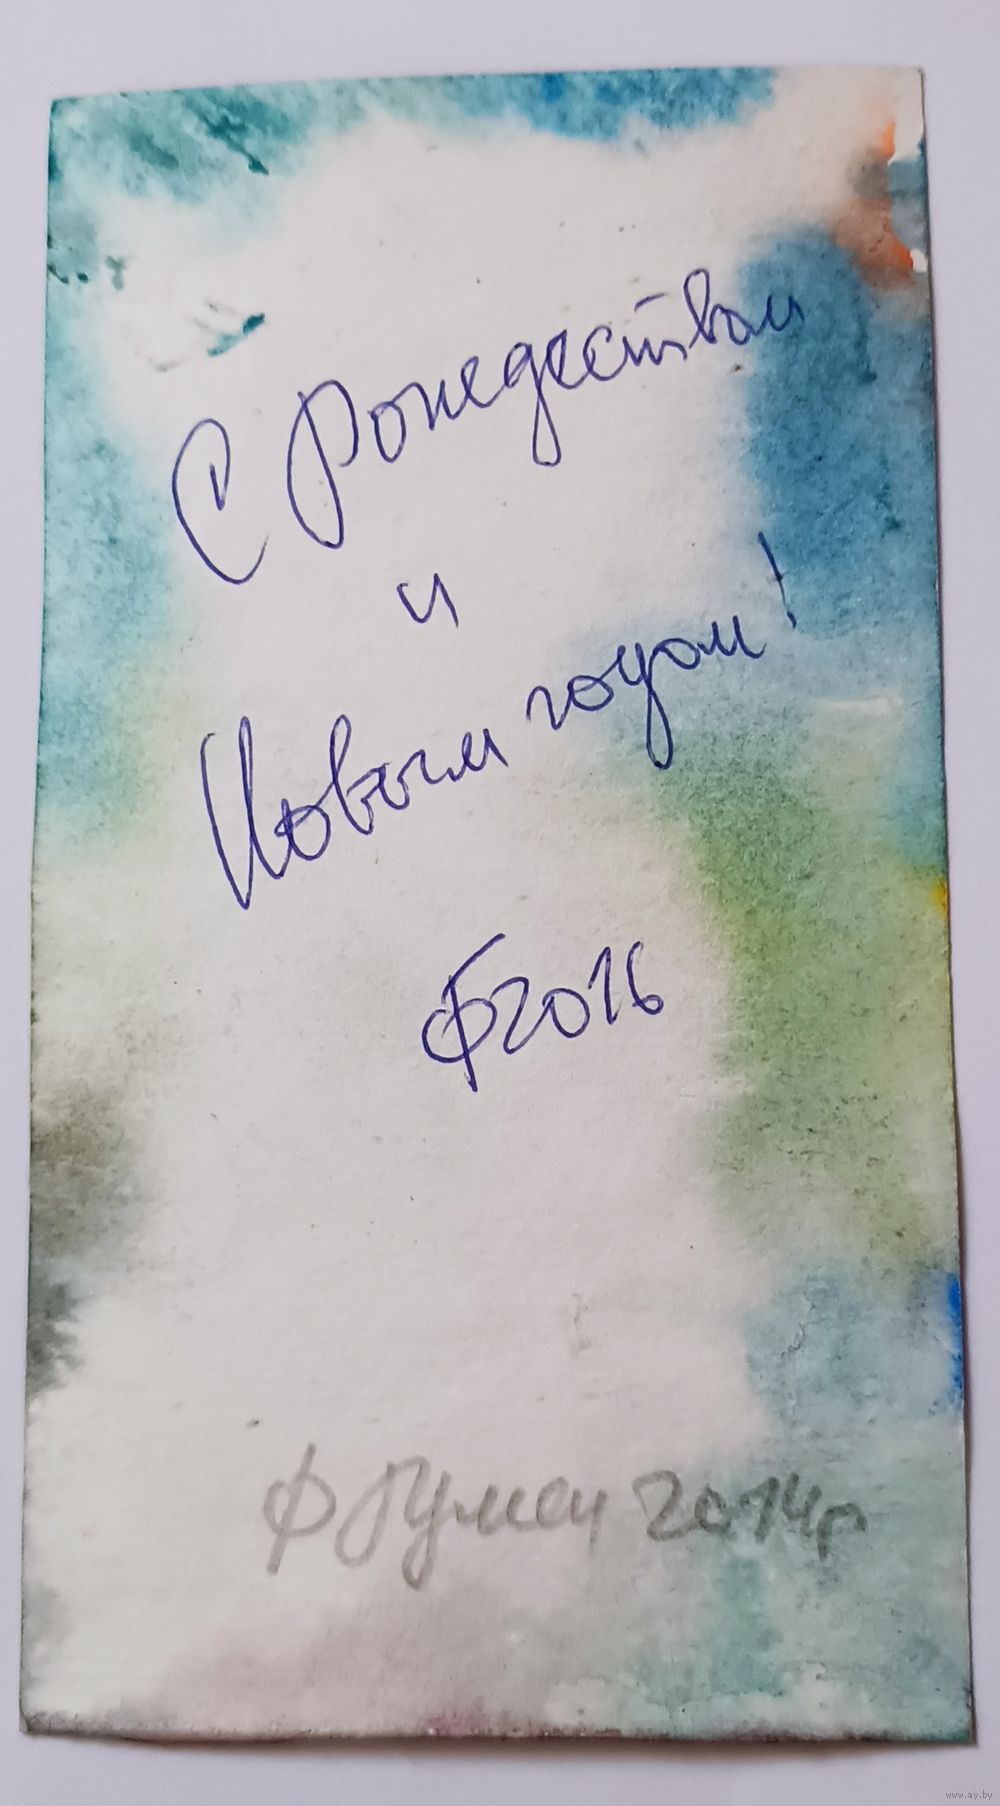 С Рождеством
и
Новым годом!
Ф2016
Ф Гумен 2014г
www.ay.by